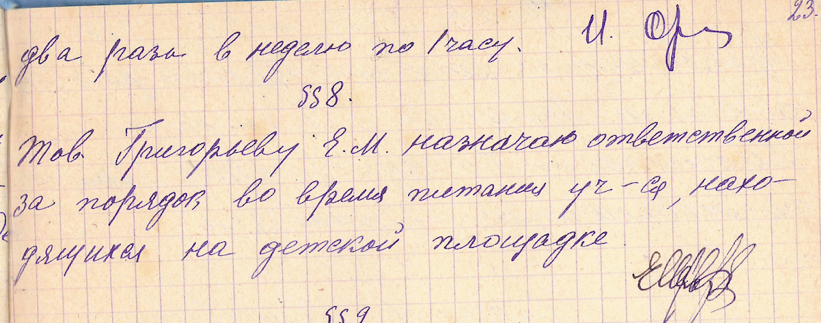 23.
два раза в неделю по 1 часу. И. Ор
§§8.
Тов. Григорьеву Е.М. назначаю ответственной
за порядок во время питания уч-ся, нахо-
дящихся на детской площадке
§§9